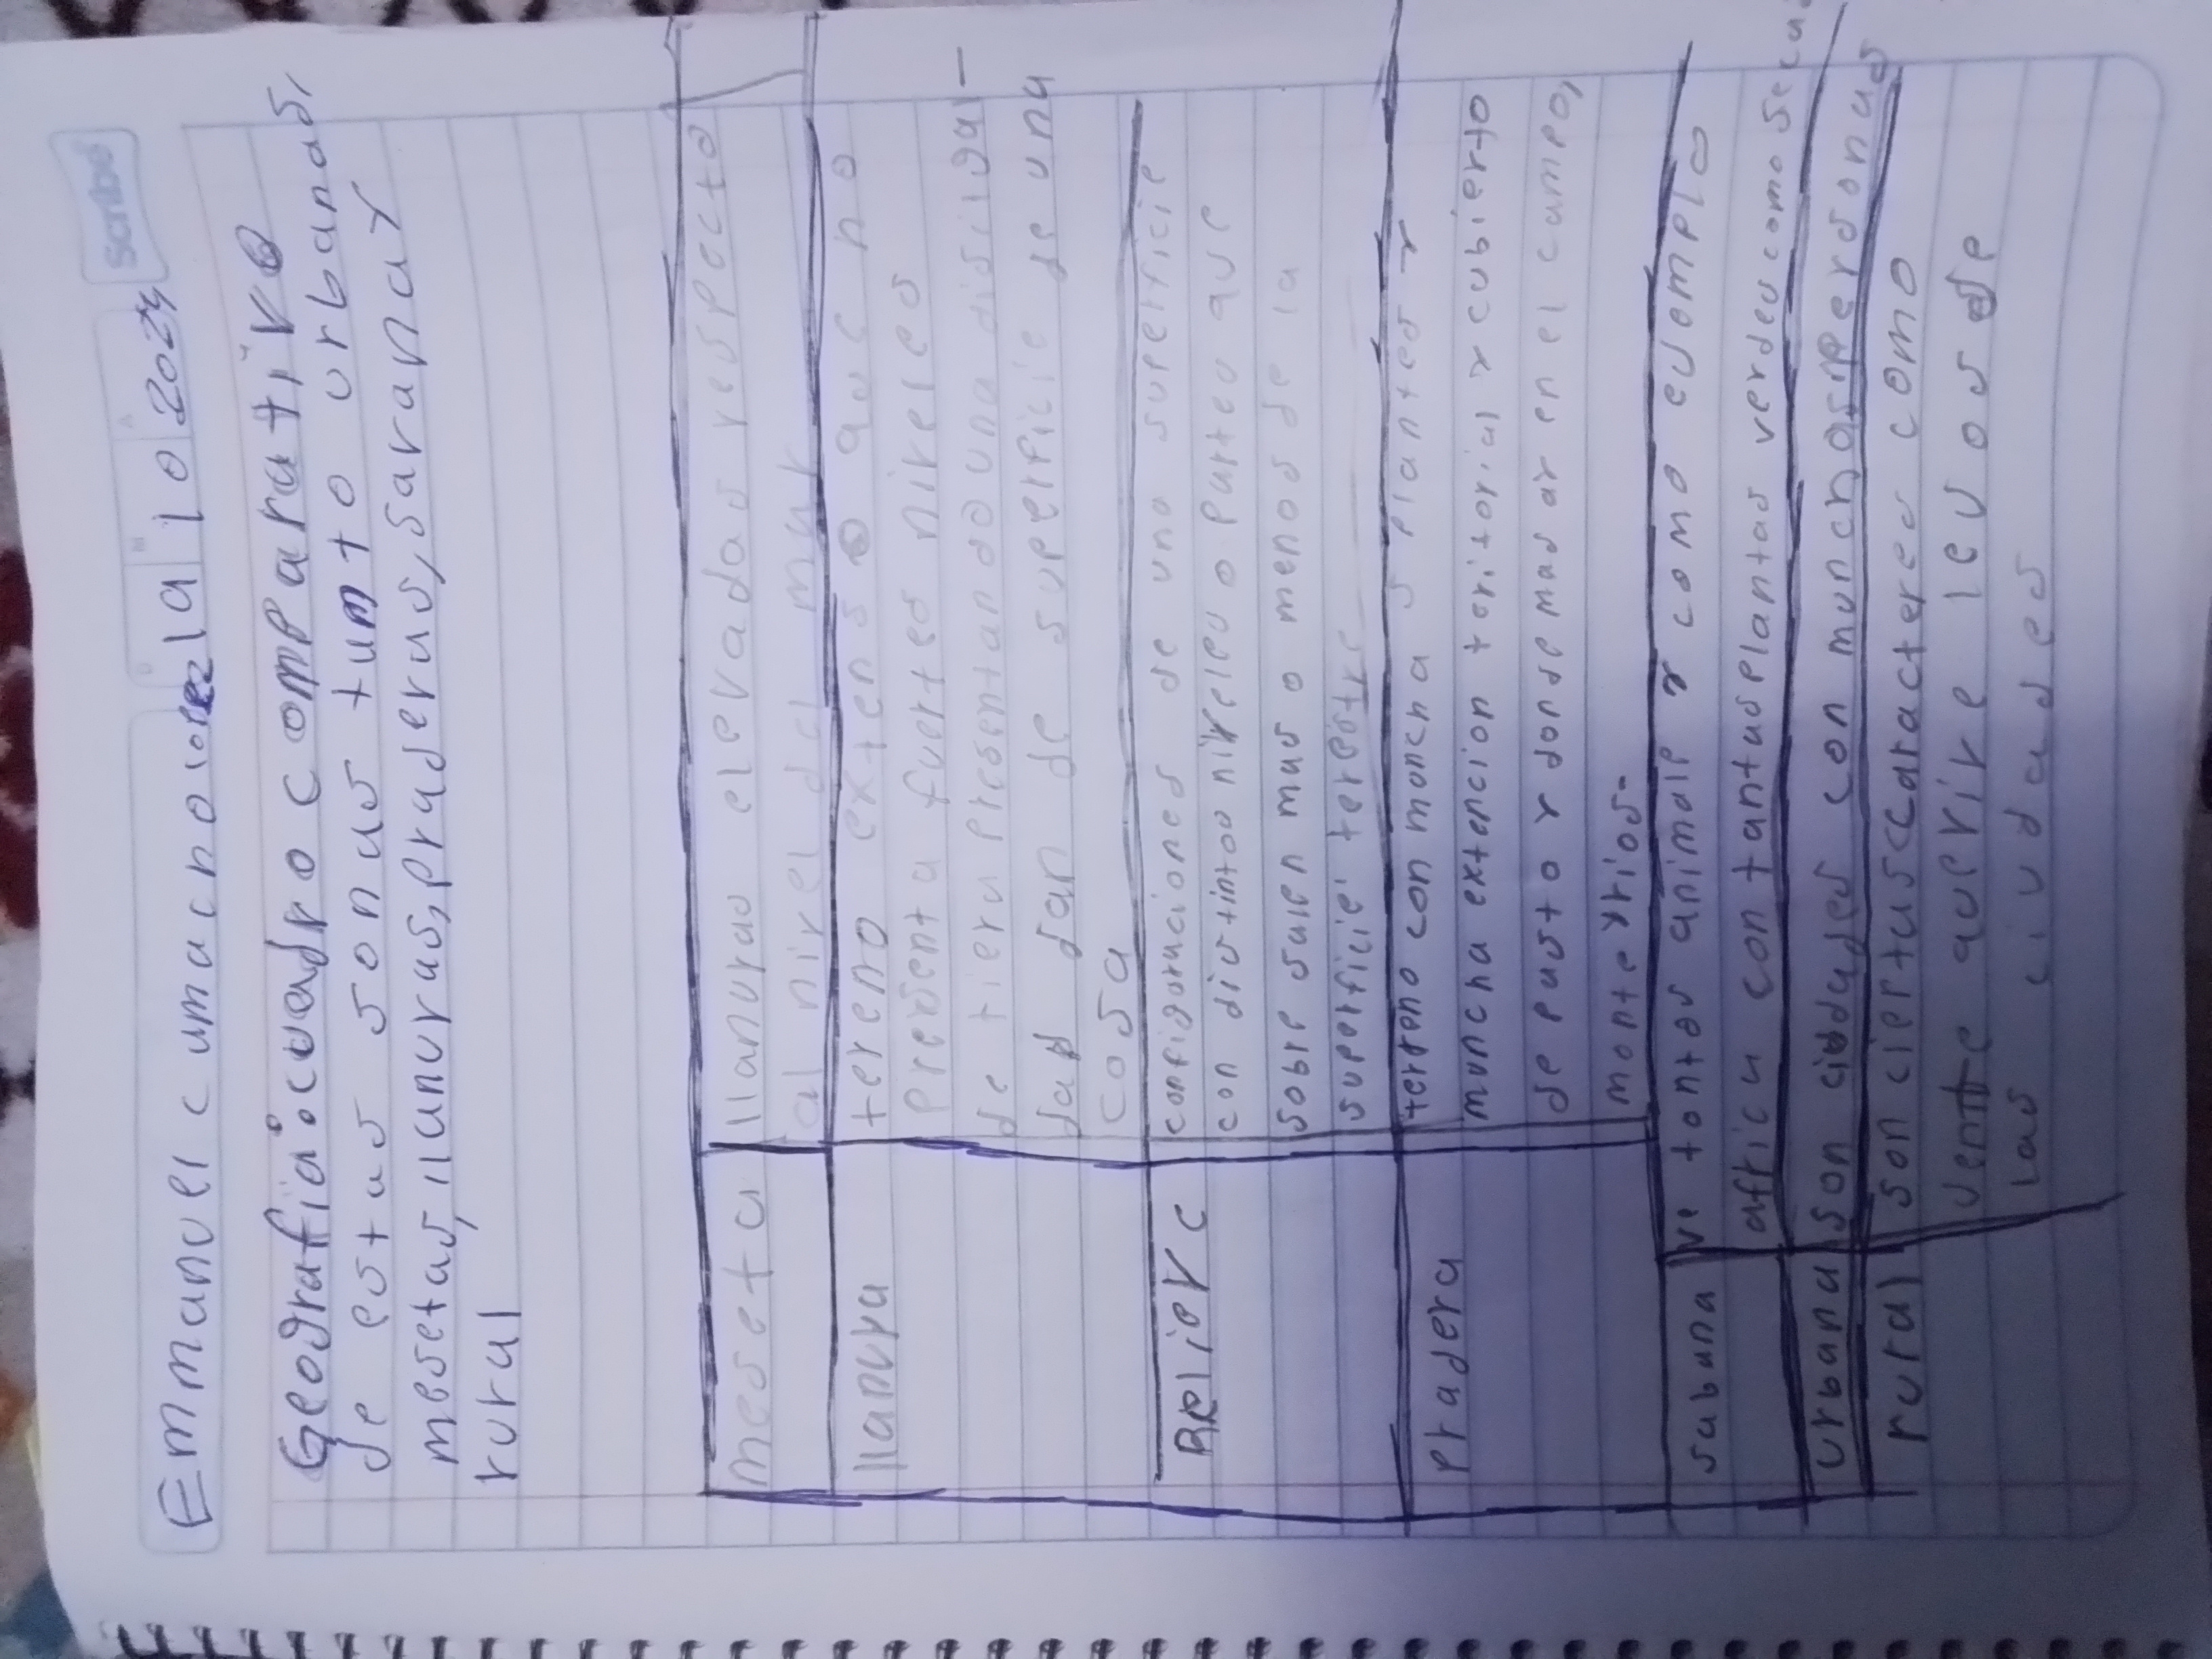 Scribe
Emmanuel camacho
2024
Geografia: cuadro comparativo
de estas sonas tamto urbanas,
mesetas, llanuras, praderas, savana y
rural
meseta
llanuras elevadas respecto
al nivel del mar
llanura
tereno extenso que no
presenta fuertes niveles
de tiera presentando una disilgal-
dad dan de superficie de una
cosa
Relieve
configoraciones de una superficie
con distintoo niveles o partes que
sobre salen mas o menos de la
superficie terestre
pradera
terreno con moncha s plantes y
muncha extencion toritorial y cubierto
de pasto y donde mas ay en el campo,
monte y rios.
sabana
ve tontos animale y como ejomplo
africa con tantas plantas verdes como seca
urbana
son cidades con munchas personas
rural
son ciertas caracteres como
las ciudades